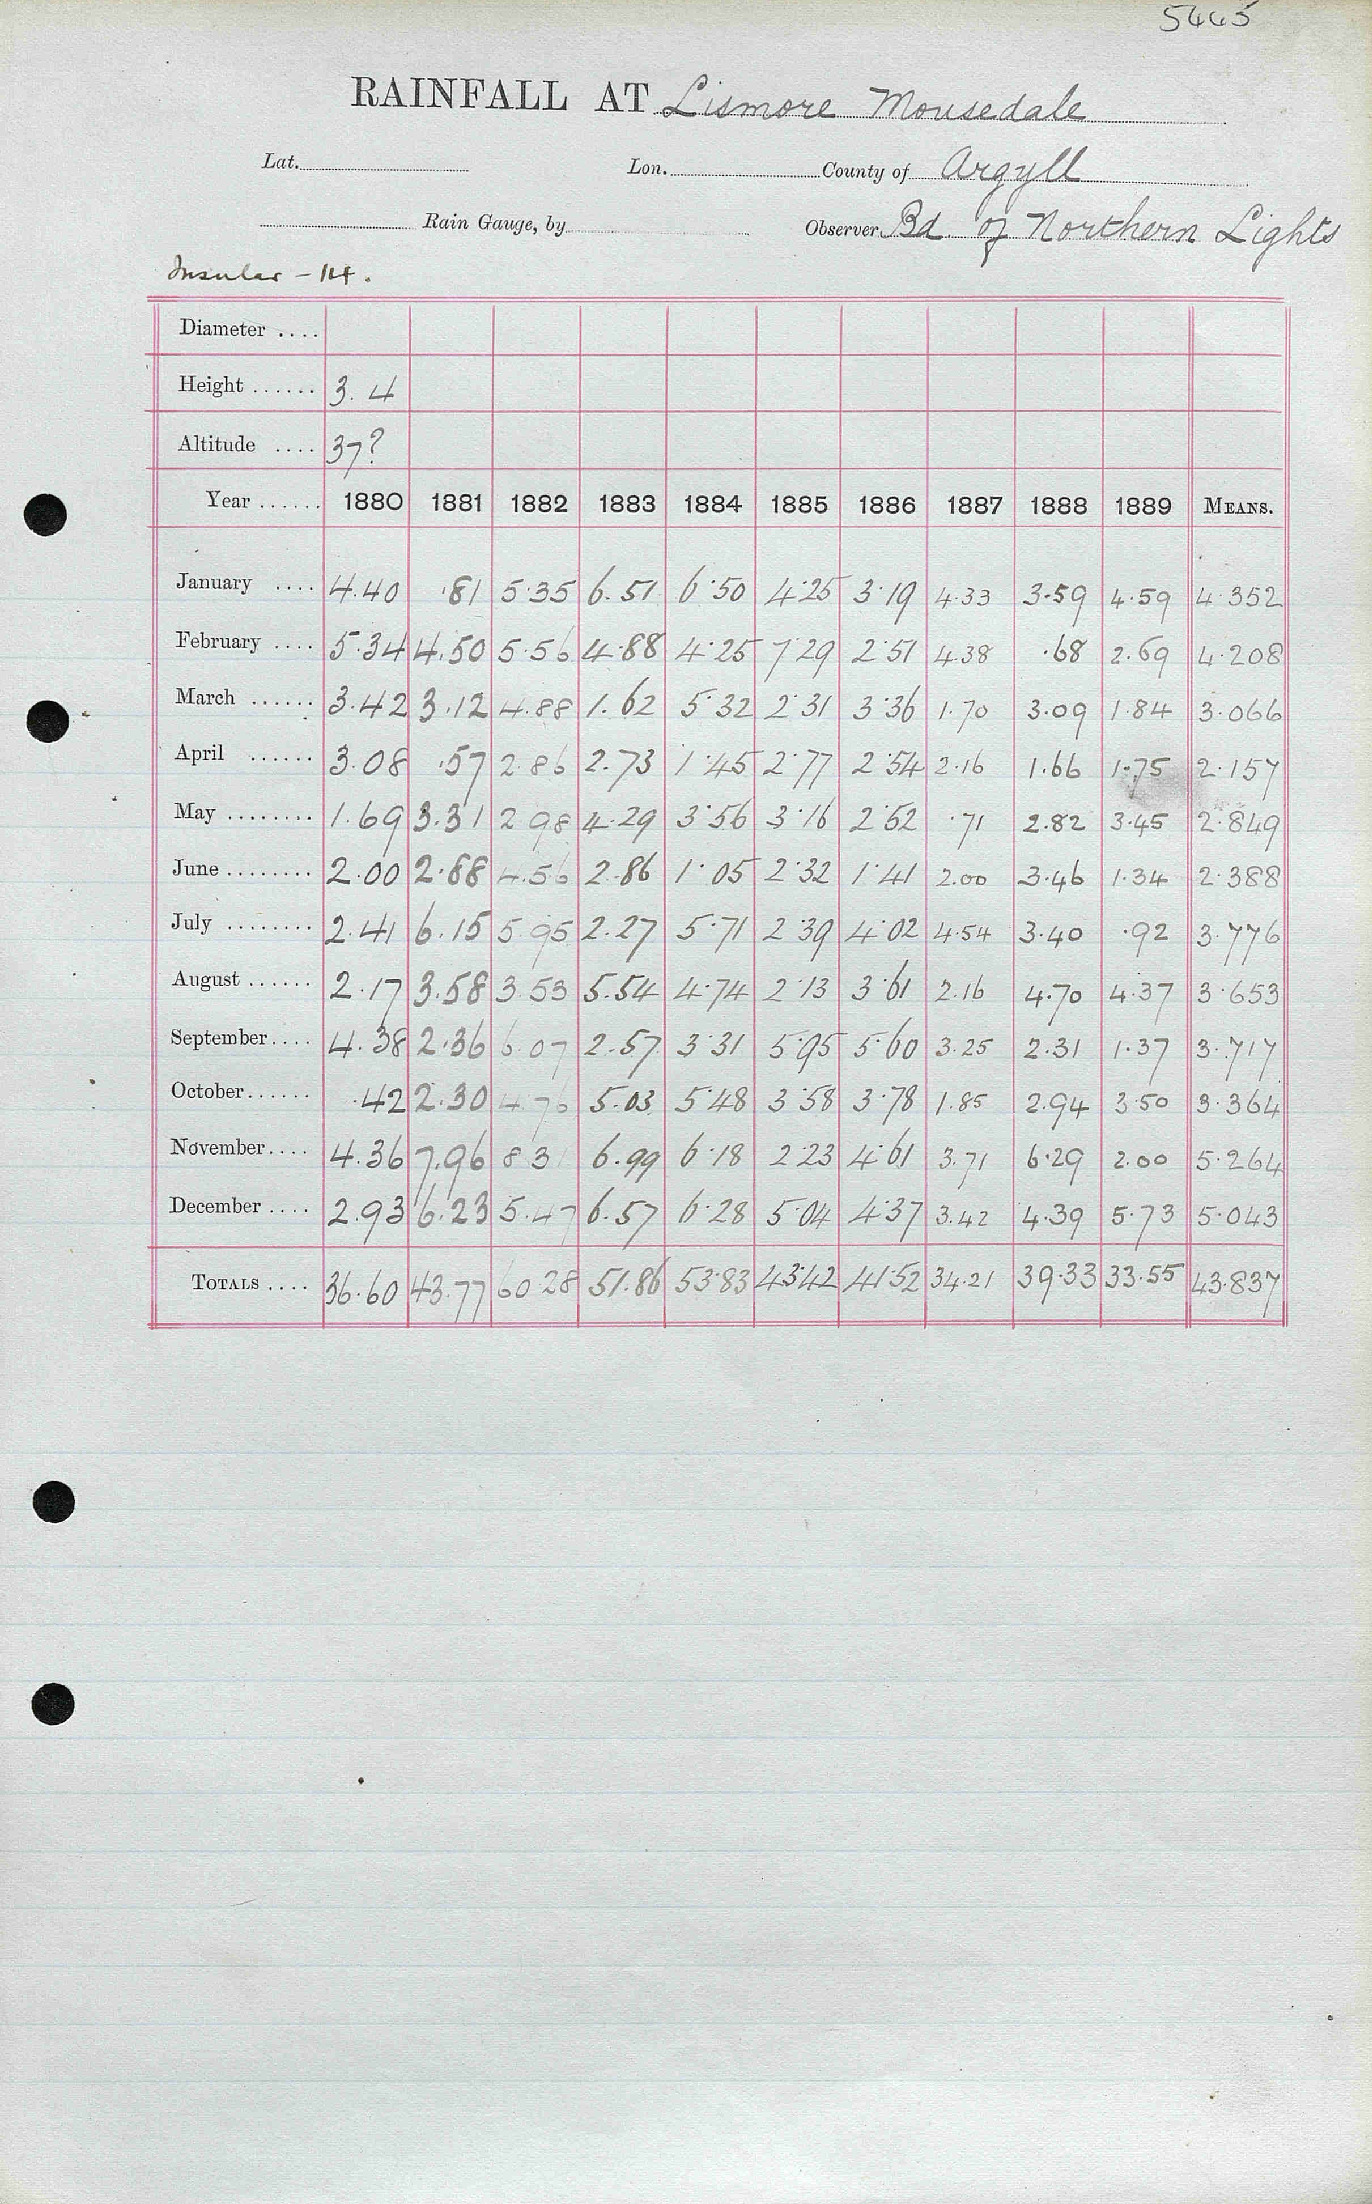 5445
RAINFALL AT Lismore Mousedale
Lat. Lon. County of Argyll
Rain Gauge, by Observer Bd of Northern Lights
Insular - 114.
Diameter ....
Height ...... 3.4
Altitude .... 37?
Year ...... 1880 1881 1882 1883 1884 1885 1886 1887 1888 1889 MEANS.
January .... 4.40 .81 5.35 6.51 6.50 4.25 3.19 4.33 3.59 4.59 4.352
February .... 5.34 4.50 5.56 4.88 4.25 7.29 2.51 4.38 .68 2.69 4.208
March ...... 3.42 3.12 4.88 1.62 5.32 2.31 3.36 1.70 3.09 1.84 3.066
April ...... 3.08 .57 2.86 2.73 1.45 2.77 2.54 2.16 1.66 1.75 2.157
May ........ 1.69 3.31 2.98 4.29 3.56 3.16 2.52 .71 2.82 3.45 2.849
June ........ 2.00 2.88 4.56 2.86 1.05 2.32 1.41 2.00 3.46 1.34 2.388
July ........ 2.41 6.15 5.95 2.27 5.71 2.39 4.02 4.54 3.40 .92 3.776
August ...... 2.17 3.58 3.53 5.54 4.74 2.13 3.61 2.16 4.70 4.37 3.653
September .... 4.38 2.36 6.07 2.57 3.31 5.95 5.60 3.25 2.31 1.37 3.717
October ...... .42 2.30 4.76 5.03 5.48 3.58 3.78 1.85 2.94 3.50 3.364
November .... 4.36 7.96 8.31 6.99 6.18 2.23 4.61 3.71 6.29 2.00 5.264
December .... 2.93 6.23 5.47 6.57 6.28 5.04 4.37 3.42 4.39 5.73 5.043
TOTALS .... 36.60 43.77 60.28 51.86 53.83 43.42 41.52 34.21 39.33 33.55 43.837